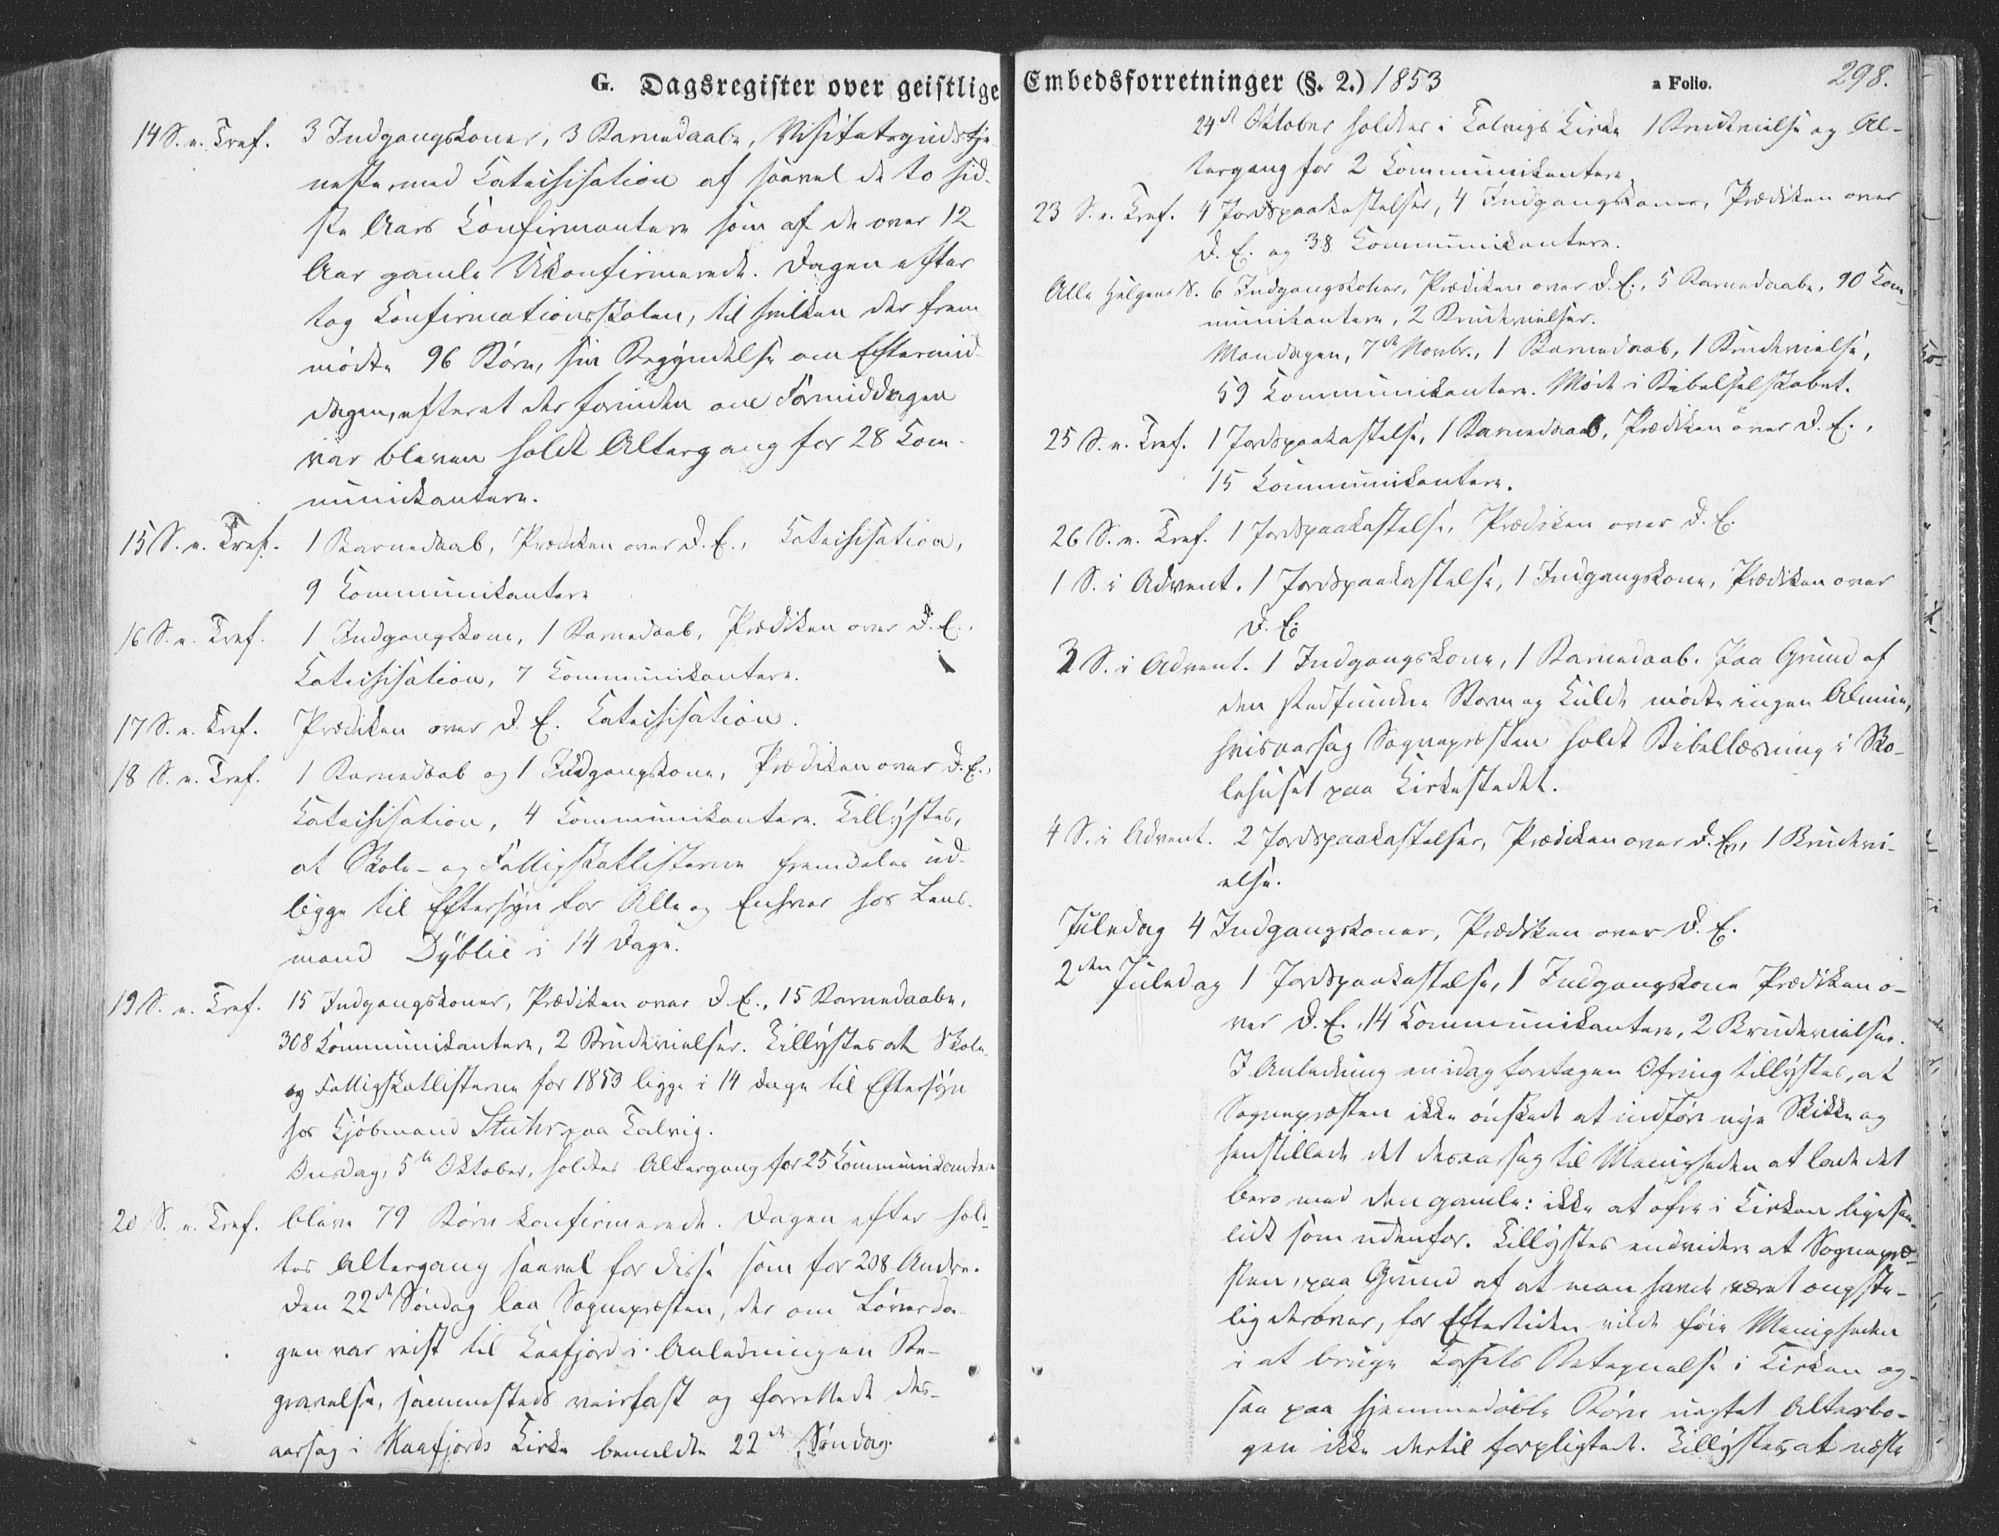 G. Dagsregister over geistlige
14 S. e. Tref. 3 Indgangskoner, 3 Barnedaabe, Visitatsgudstje-
neste med Catechisation af saavel de to sid-
ste Aars Confirmanter som af de over 12
Aar gamle Ukonfirmerede. Dagen efter
tog Confirmationsskolen, til hvilken der frem-
mødte 96 Børn, sin Begyndelse om Eftermid-
dagen, efterat der forinden om Formiddagen
var bleven holdt Altergang for 28 Com-
munikantere.
15 S. e. Tref. 1 Barnedaab, Prædiken over D. E., Catechisation,
9 Communikantere
16 S. e. Tref. 1 Indgangskone, 1 Barnedaab, Prædiken over D. E.,
Catechisation, 7 Communikantere.
17 S. e. Tref. Prædiken over D. E. Catechisation.
18 S. e. Tref. 1 Barnedaab og 1 Indgangskone, Prædiken over D. E.,
Catechisation, 4 Communikantere. Tillystes,
at Skole- og Fattigskatlisterne fremdeles ud-
ligge til Eftersyn for Alle og Enhver hos Lens-
mand Dyblie i 14 Dage.
19 S. e. Tref. 15 Indgangskoner, Prædiken over D. E., 15 Barnedaabe,
308 Communikantere, 2 Brudevielser. Tillystes at Skole-
og Fattigskatlisterne for 1853 ligge i 14 Dage til Eftersyn
hos Kjøbmand Stuhr paa Talvig.
Onsdag, 5te Oktober, holdtes Altergang for 25 Communikantere
20 S. e. Tref. bleve 79 Børn konfirmerede. Dagen efter hold-
tes Altergang saavel for disse som for 208 Andre.
Den 22de Søndag laa Sognepræsten, der om Løverda-
gen var reist til Kaafjord i Anledning en Be-
gravelse, sammesteds veirfast og forrettede des-
aarsag i Kaafjords Kirke bemeldte 22de Søndag.
Embedsforretninger (§. 2.) 1853 a Folio. 298.
24de Oktober holdtes i Talvigs Kirke 1 Brudevielse og Al-
tergang for 2 Communikantere
23 S. e. Tref. 4 Jordspaakastelser, 4 Indgangskoner, Prædiken over
D. E. og 38 Communikantere.
Alle Helgens S. 6 Indgangskoner, Prædiken over D. E., 5 Barnedaabe, 90 Com-
munikantere, 2 Brudevielser.
Mandagen, 7de Novbr., 1 Barnedaab, 1 Brudevielse,
59 Communikantere. Møde i Bibelselskabet.
25 S. e. Tref. 1 Jordspaakastelse, 1 Barnedaab, Prædiken over D. E.,
15 Communikantere.
26 S. e. Tref. 1 Jordspaakastelse, Prædiken over D. E.
1 S. i Advent. 1 Jordspaakastelse, 1 Indgangskone, Prædiken over
D. E.
3 S. i Advent. 1 Indgangskone, 1 Barnedaab. Paa Grund af
den stedfundne Storm og Kulde mødte ingen Almue,
hvisaarsag Sognepræsten holdt Bibellæsning i Sko-
lehuset paa Kirkestedet.
4 S. i Advent. 2 Jordspaakastelser, Prædiken over D. E., 1 Brudevi-
else.
Juledag 4 Indgangskoner, Prædiken over D. E.
2den Juledag 1 Jordspaakastelse, 1 Indgangskone Prædiken o-
ver D. E. 14 Communikantere, 2 Brudevielser.
I Anledning en idag foretagen Ofring tillystes, at
Sognepræsten ikke ønskede at indføre nye Skikke og
henstillede det desaarsag til Menigheden at lade det
bero med den gamle: ikke at ofre i Kirken ligesaa-
lidt som udenfor. Tillystes endvidere at Sognepræ-
sten, paa Grund af at man havde været ængste-
lig derover, for Eftertiden vilde føie Menigheden
i at bruge Korsets Betegnelse i Kirken og-
saa paa hjemmedøbte Børn uagtet Alterbo-
gen ikke dertil forpligtede. Tillystes, at næste